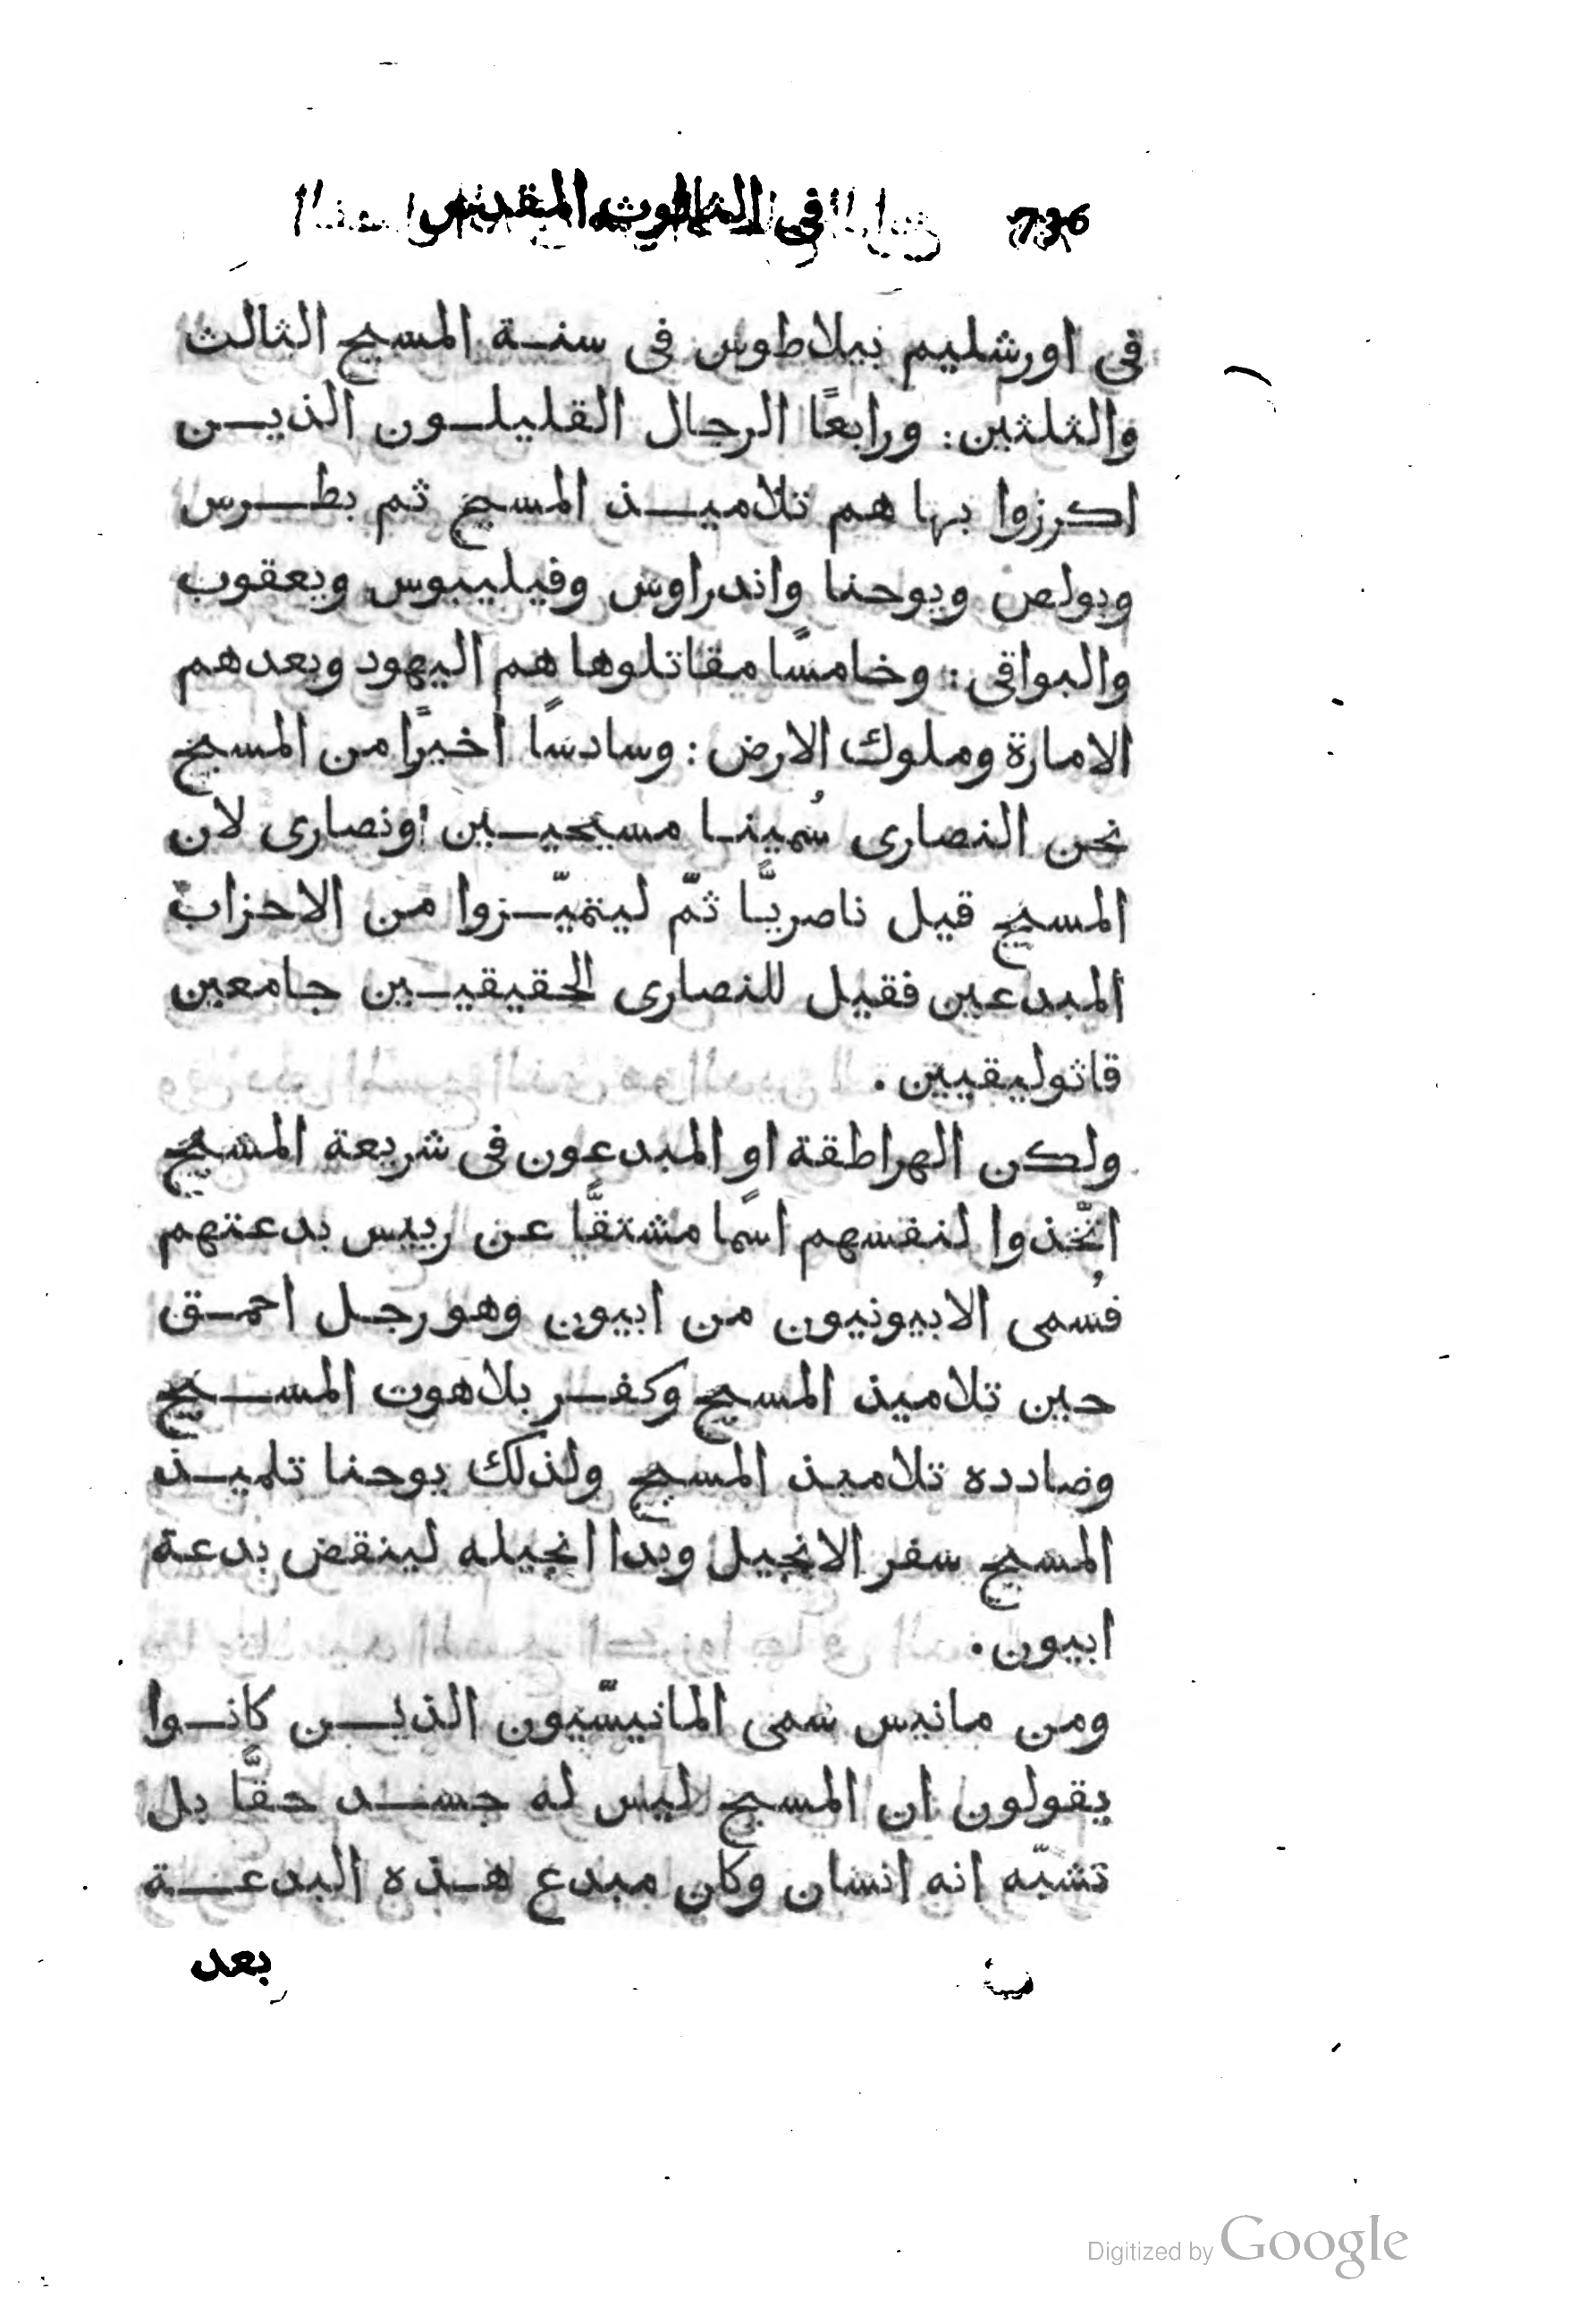 736 في الثالوث المقدس
في اورشليم بيلاطوس في سنة المسيح الثالث
والثلثين: ورابعًا الرجال القليلون الذين
اكرزوا بها هم تلاميذ المسيح ثم بطرس
وبولص ويوحنا واندراوس وفيليبوس ويعقوب
والبواقي: وخامسًا مقاتلوها هم اليهود وبعدهم
الامارة وملوك الارض: وسادسًا اخيرًا من المسيح
نحن النصارى سُمينا مسيحيين اونصارى لان
المسيح قيل ناصريًّا ثمّ ليتميّزوا من الاحزاب
المبدعين فقيل للنصارى الحقيقيين جامعين
قاثوليقيين.
ولكن الهراطقة او المبدعون في شريعة المسيح
اتّخذوا لنفسهم اسمًا مشتقًّا عن رييس بدعتهم
فسُمى الابيونيون من ابيون وهو رجل احمق
حين تلاميذ المسيح وكفر بلاهوت المسيح
وضادده تلاميذ المسيح ولذلك يوحنا تلميذ
المسيح سفر الانجيل وبدا انجيله لينقض بدعة
ابيون.
ومن مانيس سمى المانيسّيون الذين كانوا
يقولون ان المسيح ليس له جسد حقًّا بل
تشبّه انه انسان وكان مبدع هذه البدعة
بعد
Digitized by Google